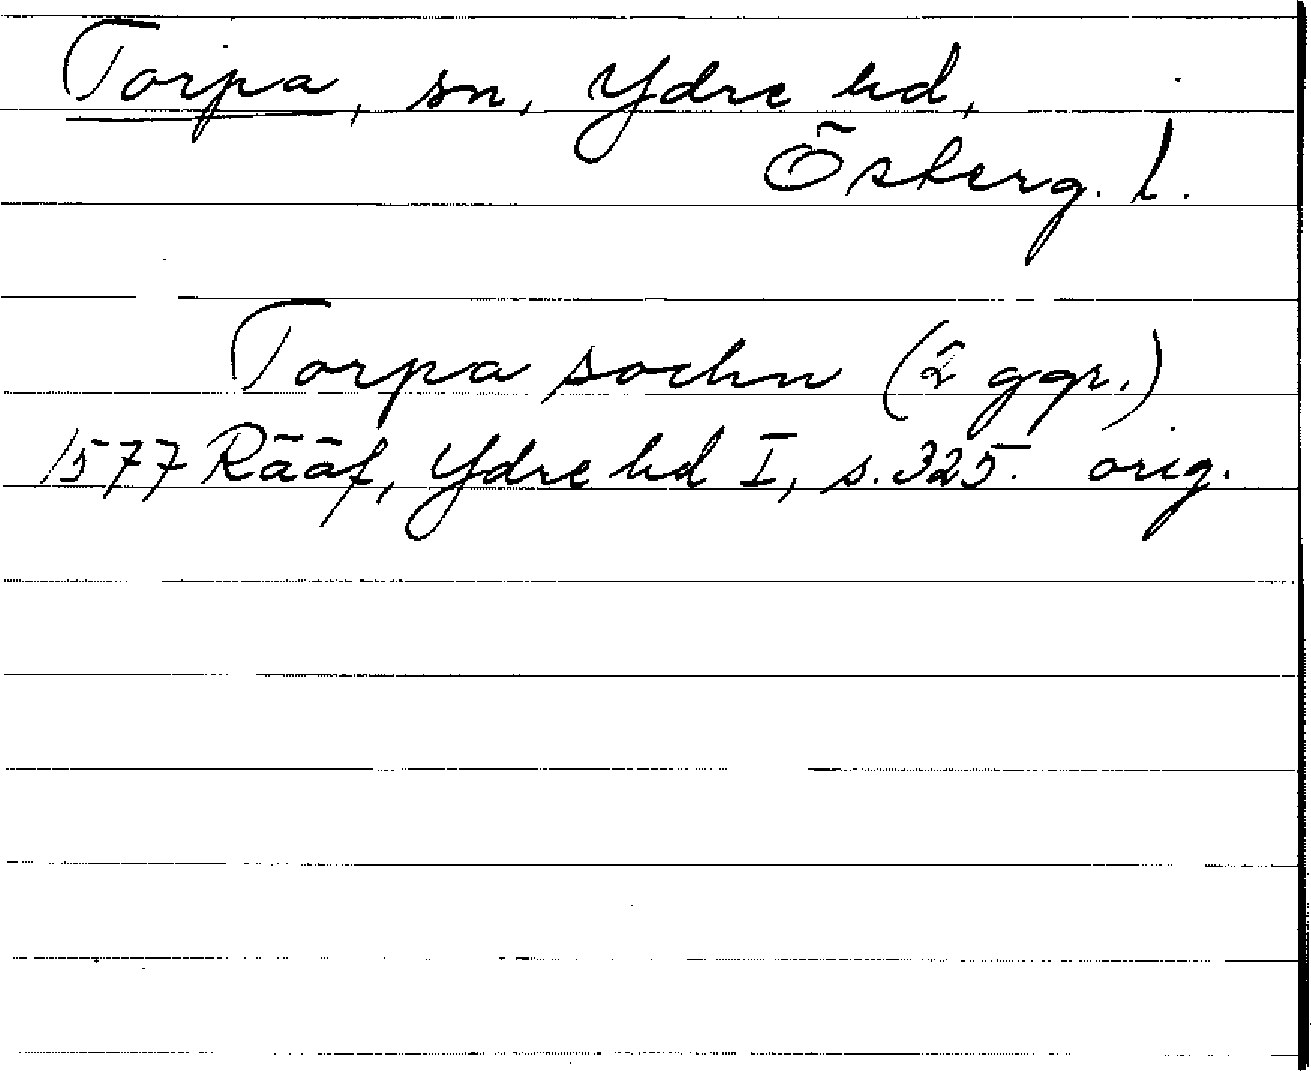 Torpa, sn, Ydre hd,
Österg. l.
Torpa sochn (2 ggr.)
1577 Rääf, Ydre hd I, s. 325. orig.